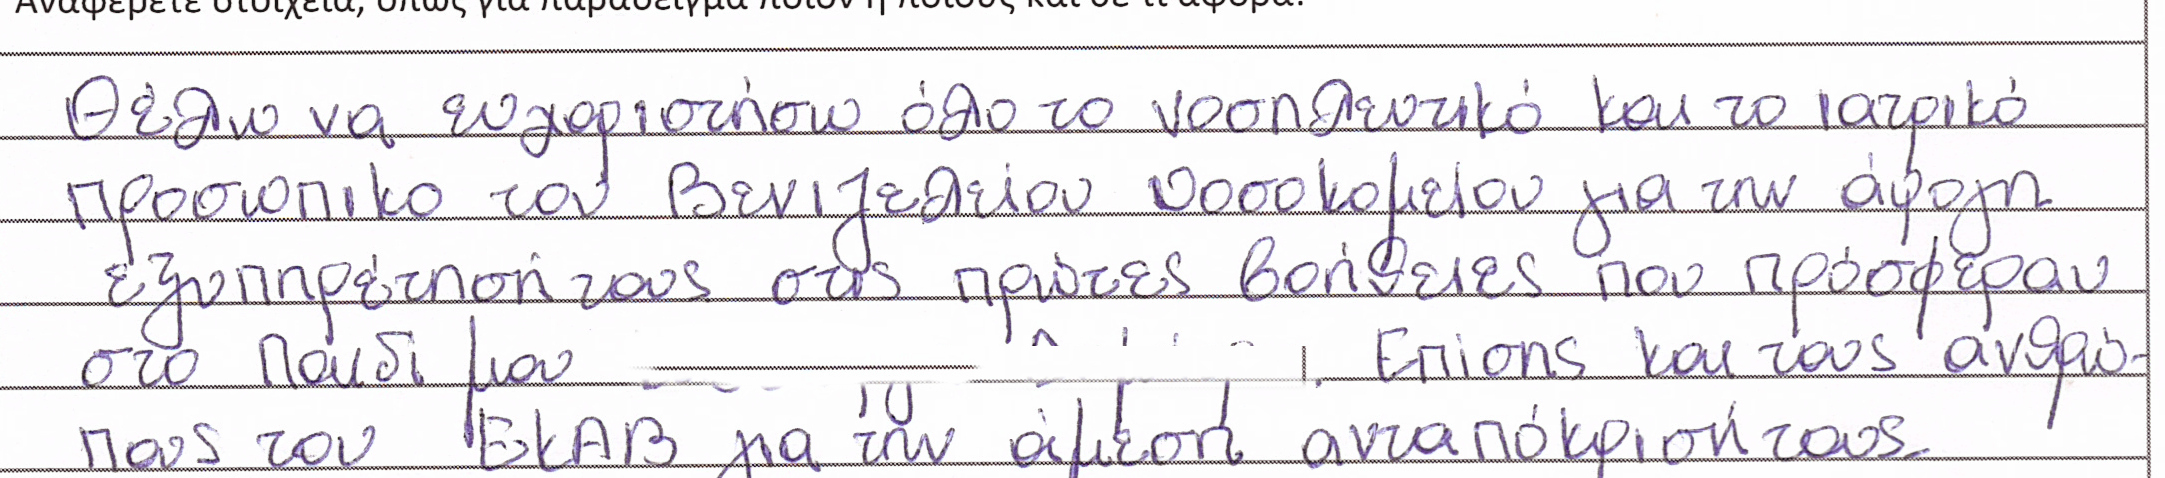 Αναφέρετε στοιχεία, όπως για παράδειγμα ποιον ή ποιους και σε τι αφορά.
Θέλω να ευχαριστήσω όλο το νοσηλευτικό και το ιατρικό
προσωπικο του Βενιζελείου νοσοκομείου για την άψογη
εξυπηρέτησή τους στις πρώτες βοήθειες που πρόσφεραν
στο παιδί μου . Επίσης και τους ανθρώ-
πους του ΕΚΑΒ για την άμεση ανταπόκρισή τους